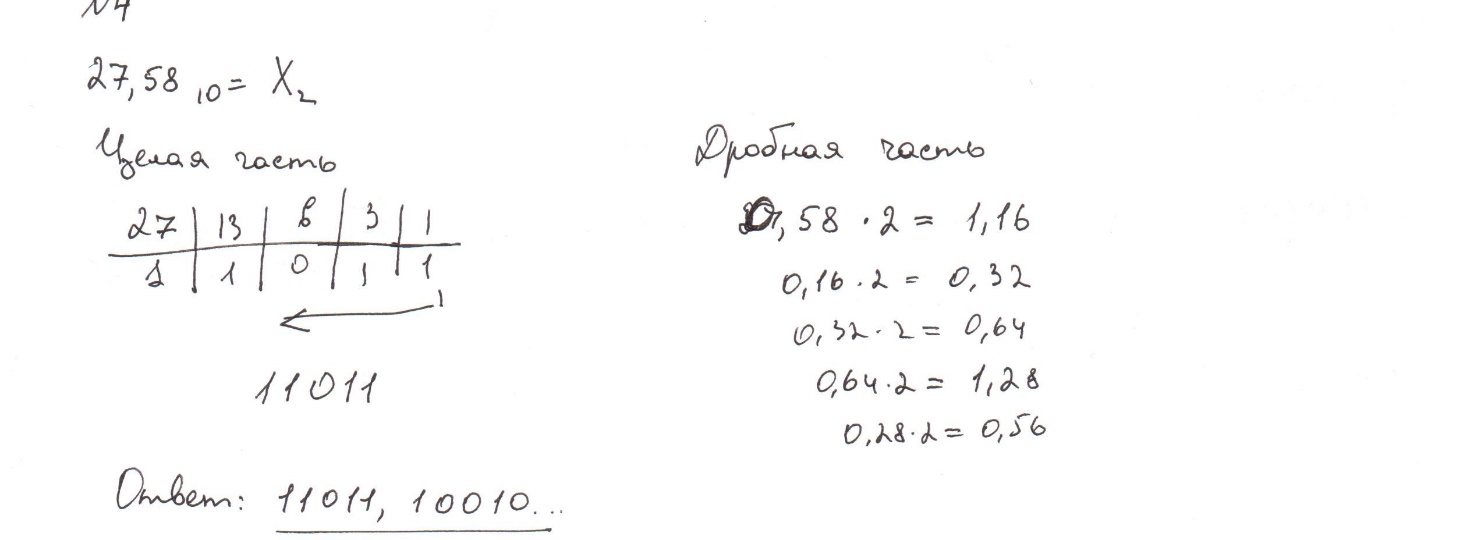 №4
27,58 10 = X2
Целая часть
27 | 13 | 6 | 3 | 1
1 | 1 | 0 | 1 | 1
11011
Дробная часть
0,58 · 2 = 1,16
0,16 · 2 = 0,32
0,32 · 2 = 0,64
0,64 · 2 = 1,28
0,28 · 2 = 0,56
Ответ: 11011, 10010...